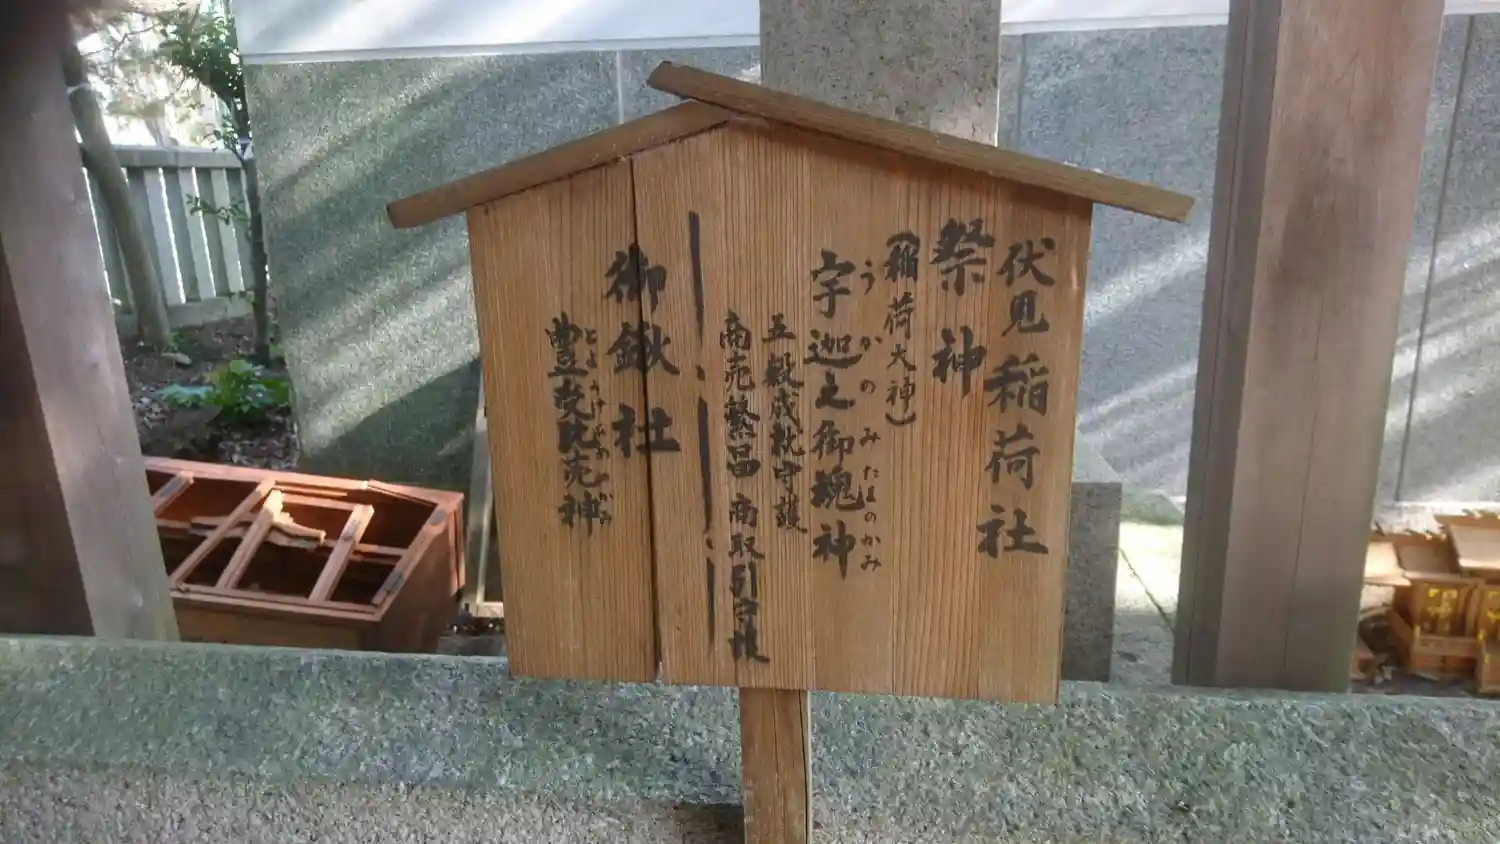 伏見稲荷社
祭神
(稲荷大神)
うかのみたまのかみ
宇迦之御魂神
五穀成就守護
商売繁昌 商取引守護
御鍬社
とようけひめのかみ
豊受比売神